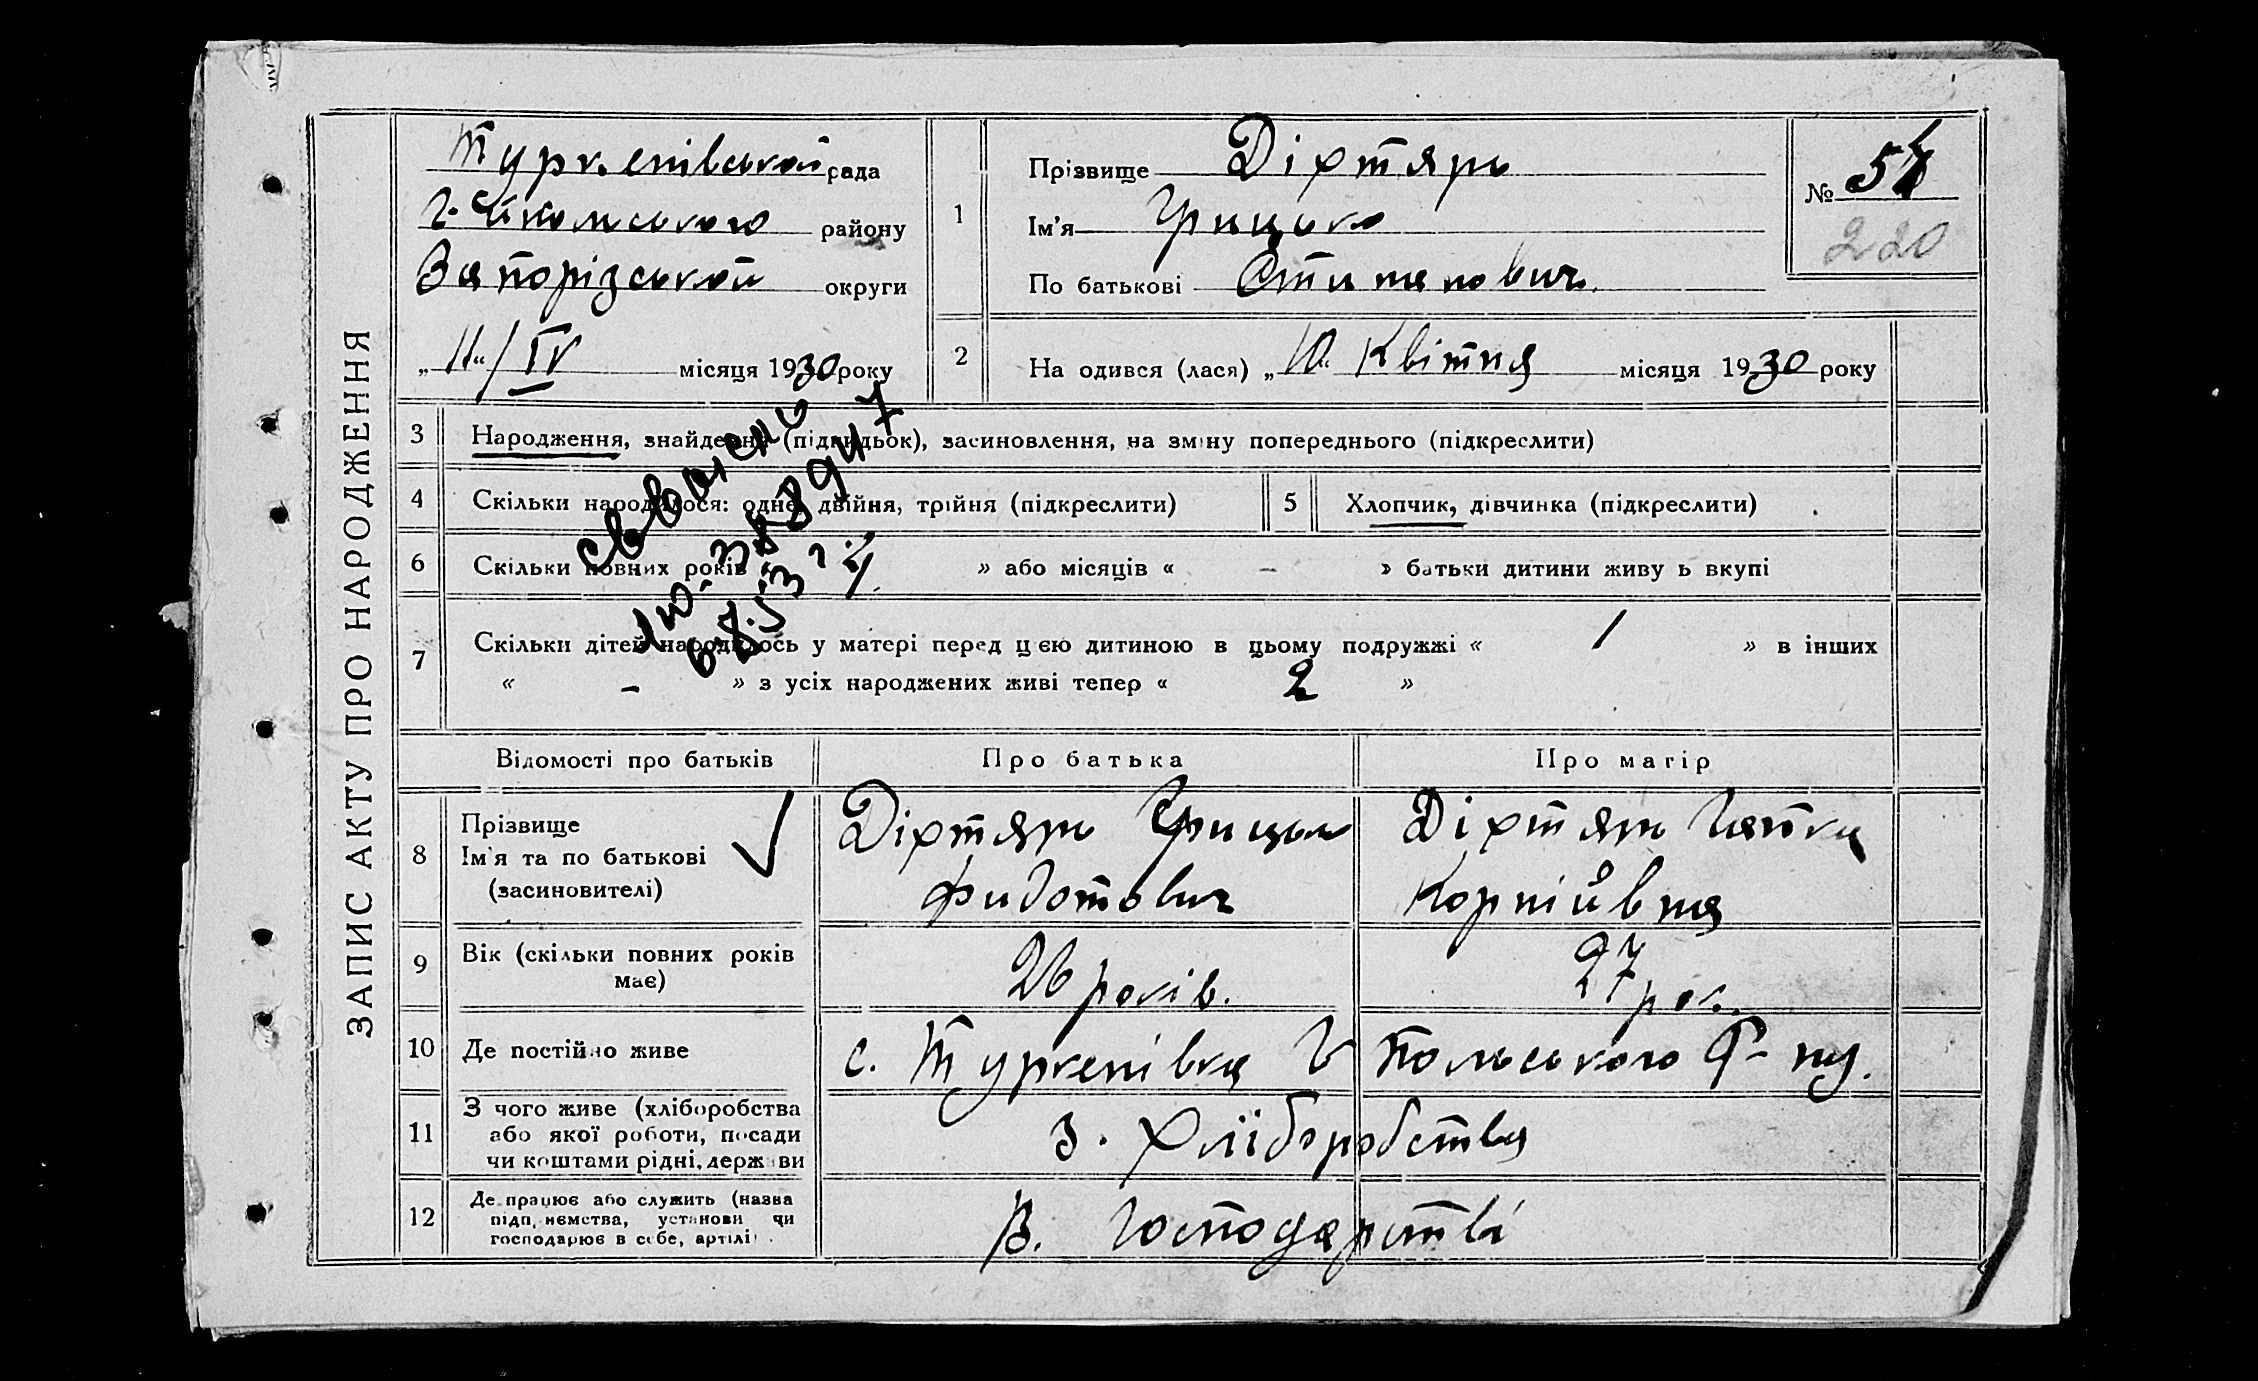 ЗАПИС АКТУ ПРО НАРОДЖЕННЯ
Туркенівської рада
Г-Пільського району
Запорізської округи
„11“/IV місяця 1930 року
1
Прізвище Діхтярь
Ім'я Грицько
По батькові
№ 54
220
2
На одився (лася) „10“ Квітня місяця 1930 року
3
Народження, знайдення (підкидьок), засиновлення, на зміну попереднього (підкреслити)
4
Скільки народилося: одне, двійня, трійня (підкреслити)
5
Хлопчик, дівчинка (підкреслити)
6
Скільки повних років « 4. » або місяців « – » батьки дитини живу ь вкупі
7
Скільки дітей народилось у матері перед цією дитиною в цьому подружжі « 1 » в інших
« – » з усіх народжених живі тепер « 2 »
Відомості про батьків
Про батька
Про матір
8
Прізвище
Ім'я та по батькові
(засиновителі)
Діхтярь Грицько
Фидотович
Діхтярь Гапка
Корніївна
9
Вік (скільки повних років
має)
26 років.
27 рок.
10
Де постійно живе
с. Туркенівка Г Польського Р-ну.
11
З чого живе (хліборобства
або якої роботи, посади
чи коштами рідні, держави
З. Хліборобства
12
Де працює або служить (назва
підп, иємства, установи чи
господарює в себе, артілі)
В. Господарстві